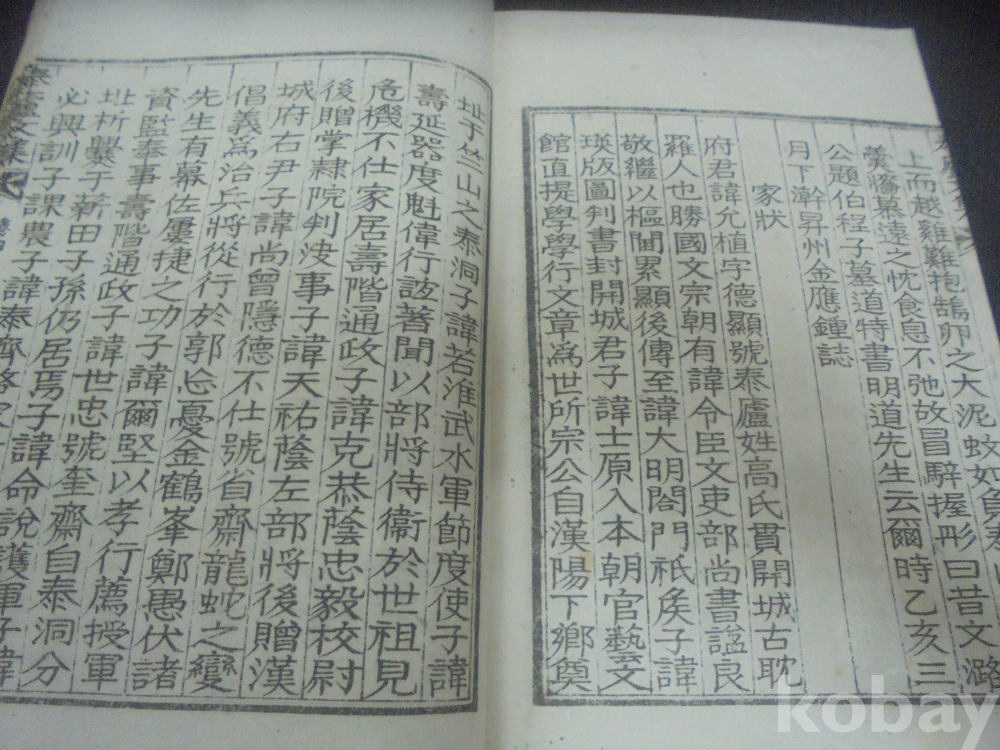 上而越雞難抱鵠卵之大泥蚊如負
羹墻慕遠之忱食息不弛故冒騂握彤曰昔文潞
公題伯程子墓道特書明道先生云爾時乙亥三
月下澣昇州金應鍾誌
家狀
府君諱允植字德顯號泰廬姓高氏貫開城古耽
羅人也勝國文宗朝有諱令臣文吏部尚書諡良
敬繼以樞閫累顯後傳至諱大明閤門祗矦子諱
瑛版圖判書封開城君子諱士原入本朝官藝文
館直提學學行文章爲世所宗公自漢陽下鄉奠
址于竺山之泰洞子諱若淮武水軍節度使子諱
壽延器度魁偉行誼著聞以部將侍衛於世祖見
危機不仕家居壽階通政子諱克恭蔭忠毅校尉
後贈掌隸院判決事子諱天祐蔭左部將後贈漢
城府右尹子諱尚曾隱德不仕號省齋龍蛇之變
倡義爲治兵將從行於郭忘憂金鶴峯鄭愚伏諸
先生有幕佐屢捷之功子諱爾堅以孝行薦授軍
資監奉事壽階通政子諱世忠號奎齋自泰洞分
址析爨于薪田子孫仍居焉子諱命說護軍子諱
必興訓子課農子諱泰齊
泰廬文集 卷四
kobay